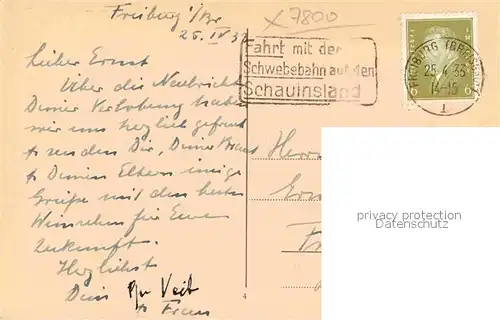 Freiburg i/Br
25. IV 33
7800
Fahrt mit der
Schwebebahn auf den
Schauinsland
FREIBURG (BREISGAU)
25.4.33
14-15
1
6 6
Lieber Ernst
Über die Nachricht
Deiner Verlobung haben
wir uns herzlich gefreut
& senden Dir, Deiner Braut
& Deinen Eltern innige
Grüße mit den besten
Wünschen für Eure
Zukunft.
Herzlichst
Dein Veit
& Frau
Herrn
4
privacy protection
Datenschutz